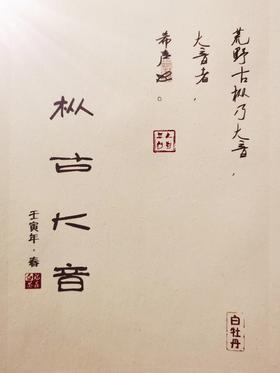 荒野古枞乃大音，
大音者，
希声也。
枞古大音
壬寅年·春
白牡丹